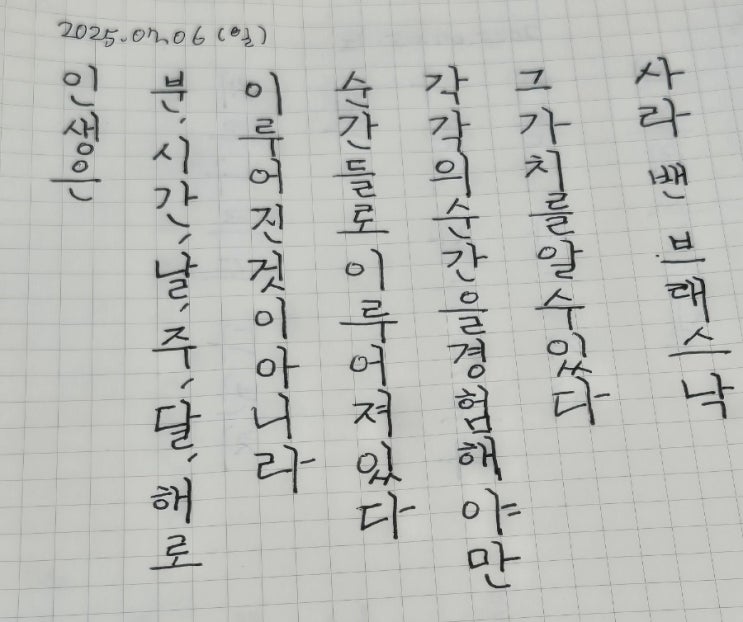 2025.04.06 (일)
인생은
분, 시간, 날, 주, 달, 해로
이루어진것이아니라
순간들로이루어져있다
각각의순간을경험해야만
그가치를알수있다
사라 밴 브래스낙